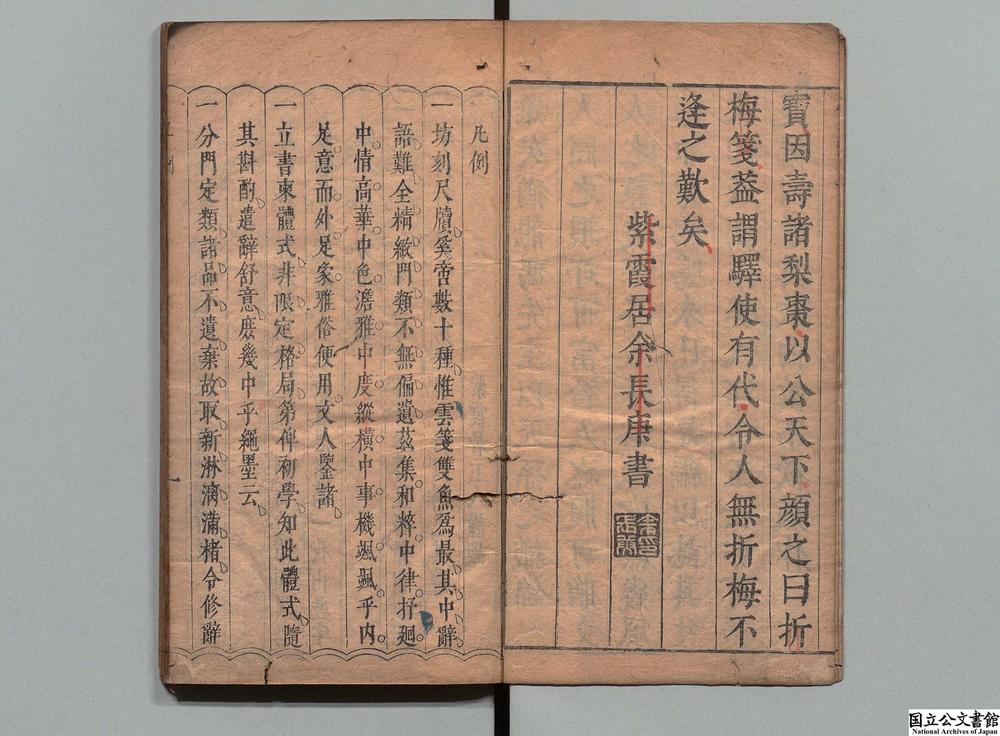 寶因壽諸梨棗以公天下顔之曰折
梅箋葢謂驛使有代令人無折梅不
逢之歎矣
紫霞居余長庚書
凡例
一坊刻尺牘奚啻數十種惟雲箋雙魚爲最其中辭
語難全精緻門類不無偏遺茲集和粹中律抒𢌞
中情高華中色澹雅中度縱橫中事機颯颯乎内
足意而外足象雅俗便用文人鑒諸
一立書柬體式非限定格局第俾初學知此體式隨
其斟酌遣辭舒意庻幾中乎繩墨云
一分門定類諸品不遺棄故取新淋漓滿楮令修辭
国立公文書館
National Archives of Japan